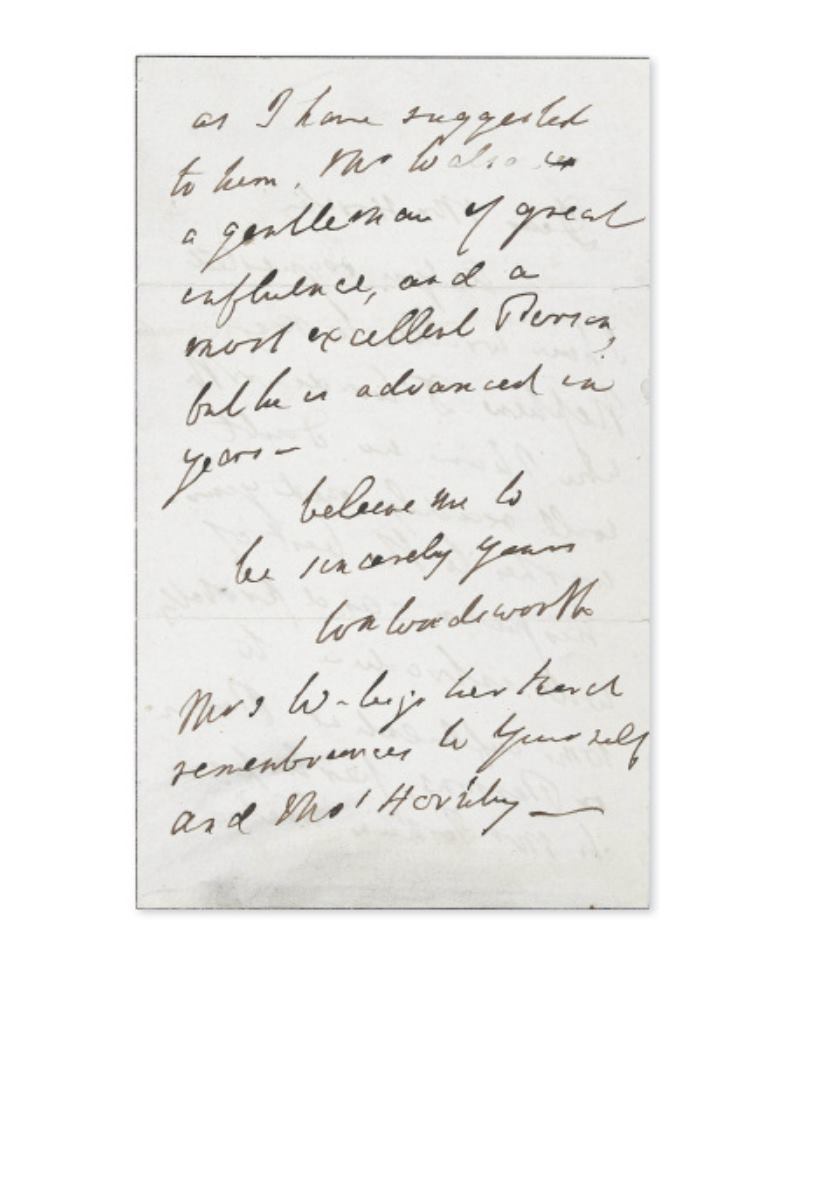 as I have suggested
to him. Mr W also is
a gentleman of great
influence, and a
most excellent Person,
but he is advanced in
years—
believe me to
be sincerely yours
Wm Wordsworth
Mrs W- begs her kind
remembrances to Yourself
and Mrs Hornby —